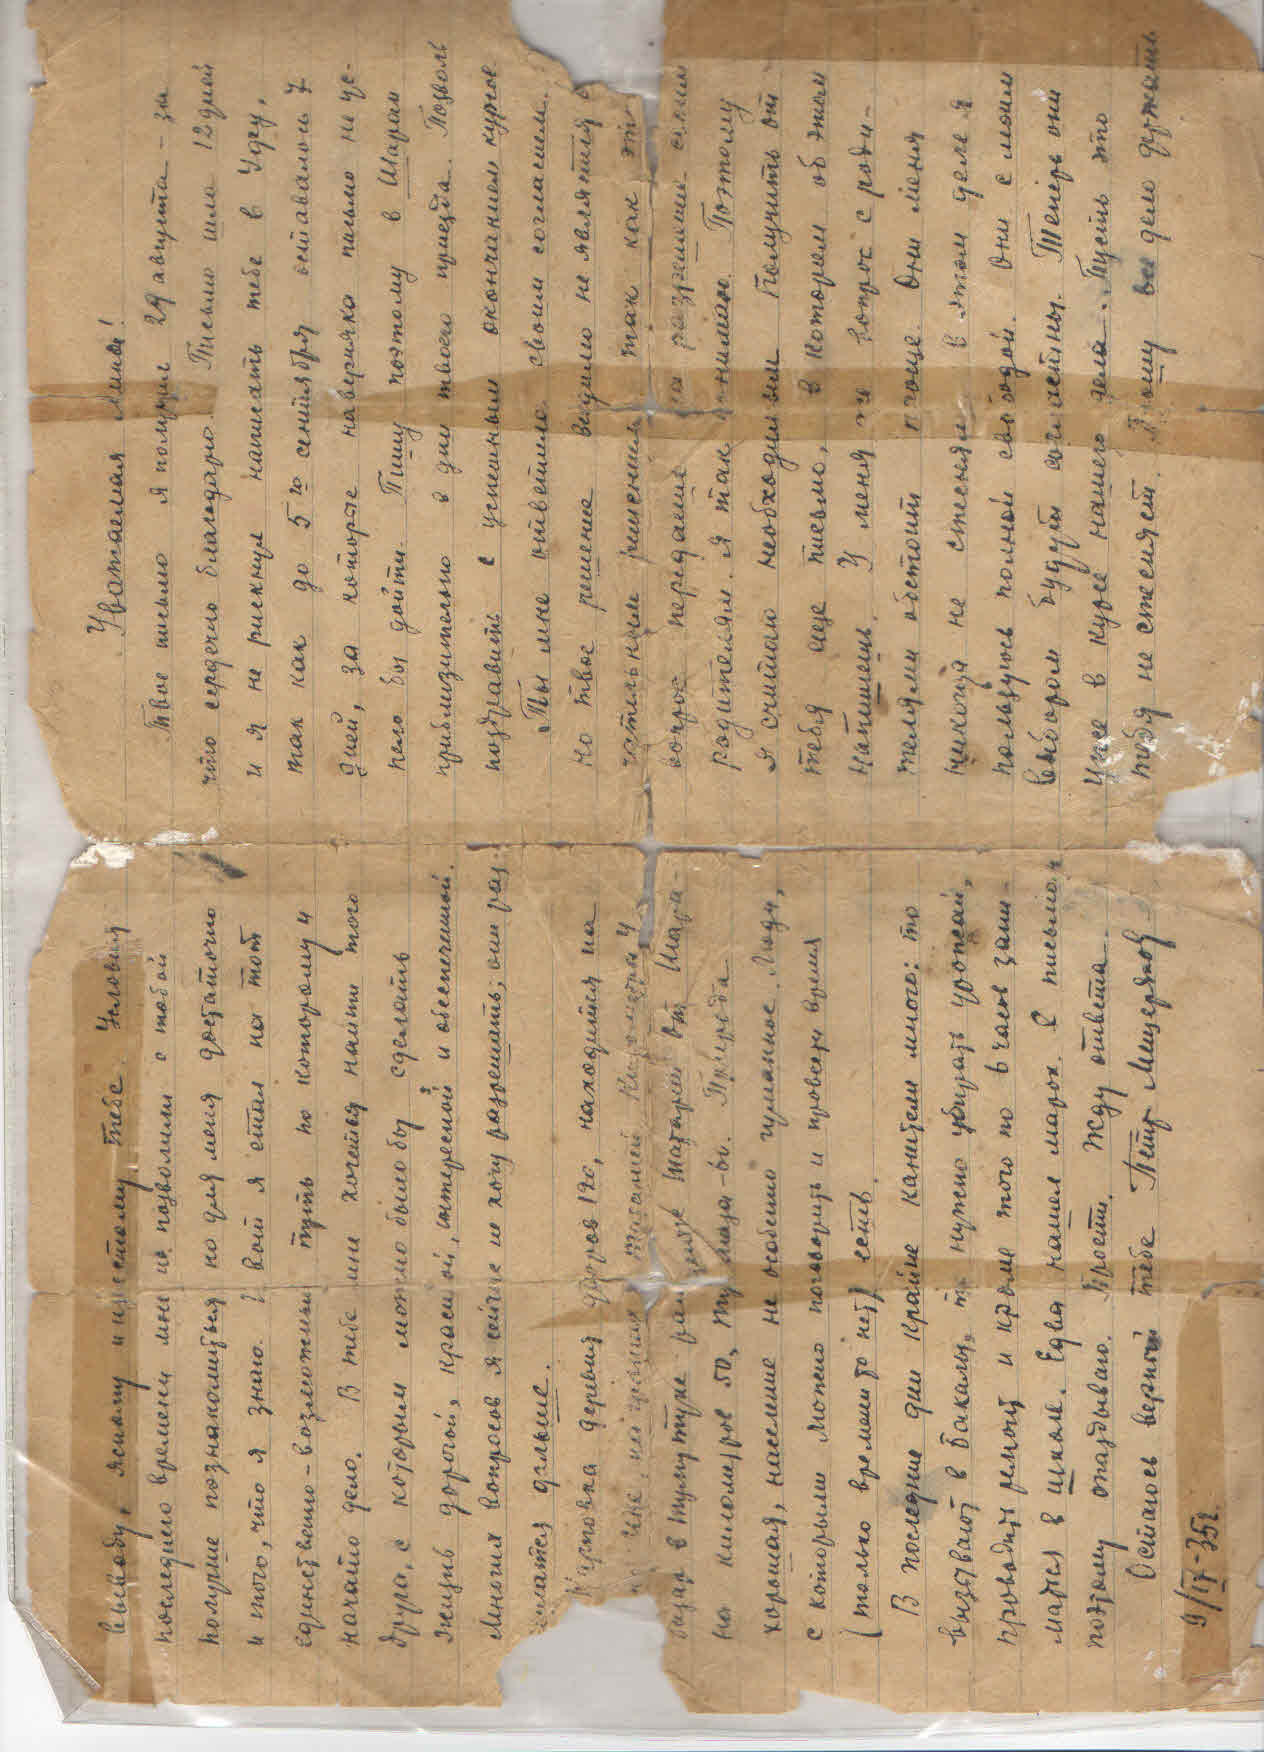 Уважаемая Лина!
Твое письмо я получил 29 августа – за
что сердечно благодарю. Письмо шло 12 дней
и я не рискнул написать тебе в Уфу,
так как до 5го сентября оставалось 7
дней, за которые наверняка письмо не ус-
пело бы дойти. Пишу поэтому в Шаран
приблизительно в дни твоего приезда. Позволь
поздравить с успешным окончанием курсов.
Ты мне ответила своим согласием.
Но твое решение видимо не является
чательным решением так как это
вопрос передаешь на разрешение своим
родителям. Я так понимаю. Поэтому
я считаю необходимым получить от
тебя еще письмо, в котором об этом
напишешь. У меня же вопрос с роди-
телями обстоит проще. Они меня
никогда не стесняли в этом деле я
пользуюсь полной свободой. Они с моим
выбором будут согласны. Теперь они
уже в курсе нашего дела. Пусть это
тебя не стесняет. Прошу все дело держать
выводу, ясному и простому тебе. Условия
последнего времени мне не позволили с тобой
получше познакомиться но для меня достаточно
и того, что я знаю. Встал на тот
единственно-возможный путь по которому и
начато дело. В тебе мне хочется найти того
друга, с которым можно было бы сделать
жизнь дорогой, красивой, интересной и обеспеченной.
Многих вопросов я сейчас не хочу разрешать; они раз-
шатся дальше.
деревня дворов 120, находится на
базар в Туймутуке раньше Шаран от Шара-
на километров 50, Природа
хорошая, население не особенно гуманное. Люди,
с которыми можно поговорить и провести время
(только времени-то нет) есть.
В последние дни крайне канители много: то
вызывают в Бакалы, то нужно убирать урожай,
проводить ремонт и кроме того по 6 часов зани-
маться в школе. Едва нашел марок. С письмом
поэтому опаздываю. Прости. Жду ответа.
Остаюсь верный тебе Петр Мещеряков
9/IX-35г.